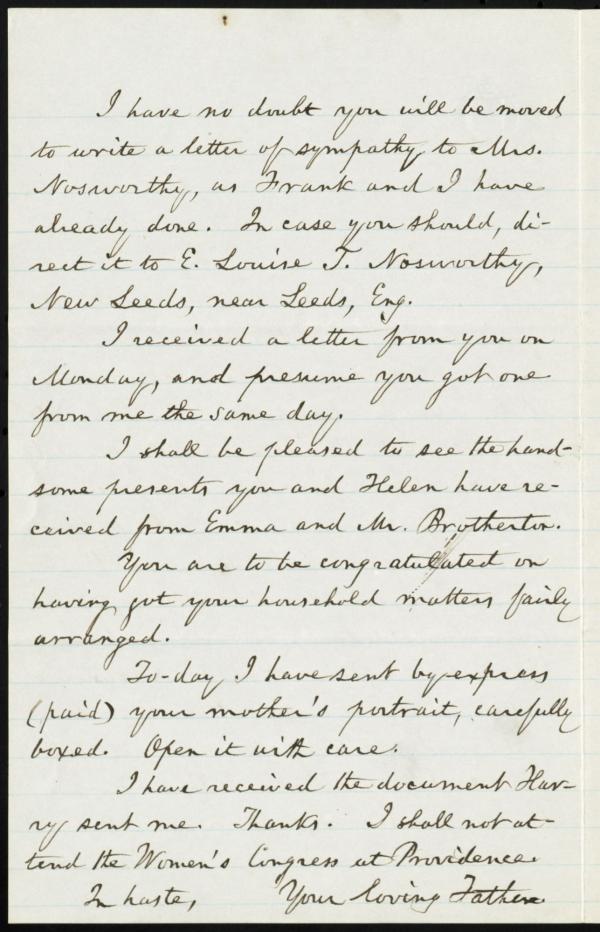 I have no doubt you will be moved
to write a letter of sympathy to Mrs.
Nosworthy, as Frank and I have
already done. In case you should, di-
rect it to E. Louise T. Nosworthy,
New Leeds, near Leeds, Eng.
I received a letter from you on
Monday, and presume you got one
from me the same day.
I shall be pleased to see the hand-
some presents you and Helen have re-
ceived from Emma and Mr. Brotherton.
You are to be congratulated on
having got your household matters fairly
arranged.
To-day I have sent by express
(paid) your mother's portrait, carefully
boxed. Open it with care.
I have received the document Har-
ry sent me. Thanks. I shall not at-
tend the Women's Congress at Providence.
In haste, Your loving Father.